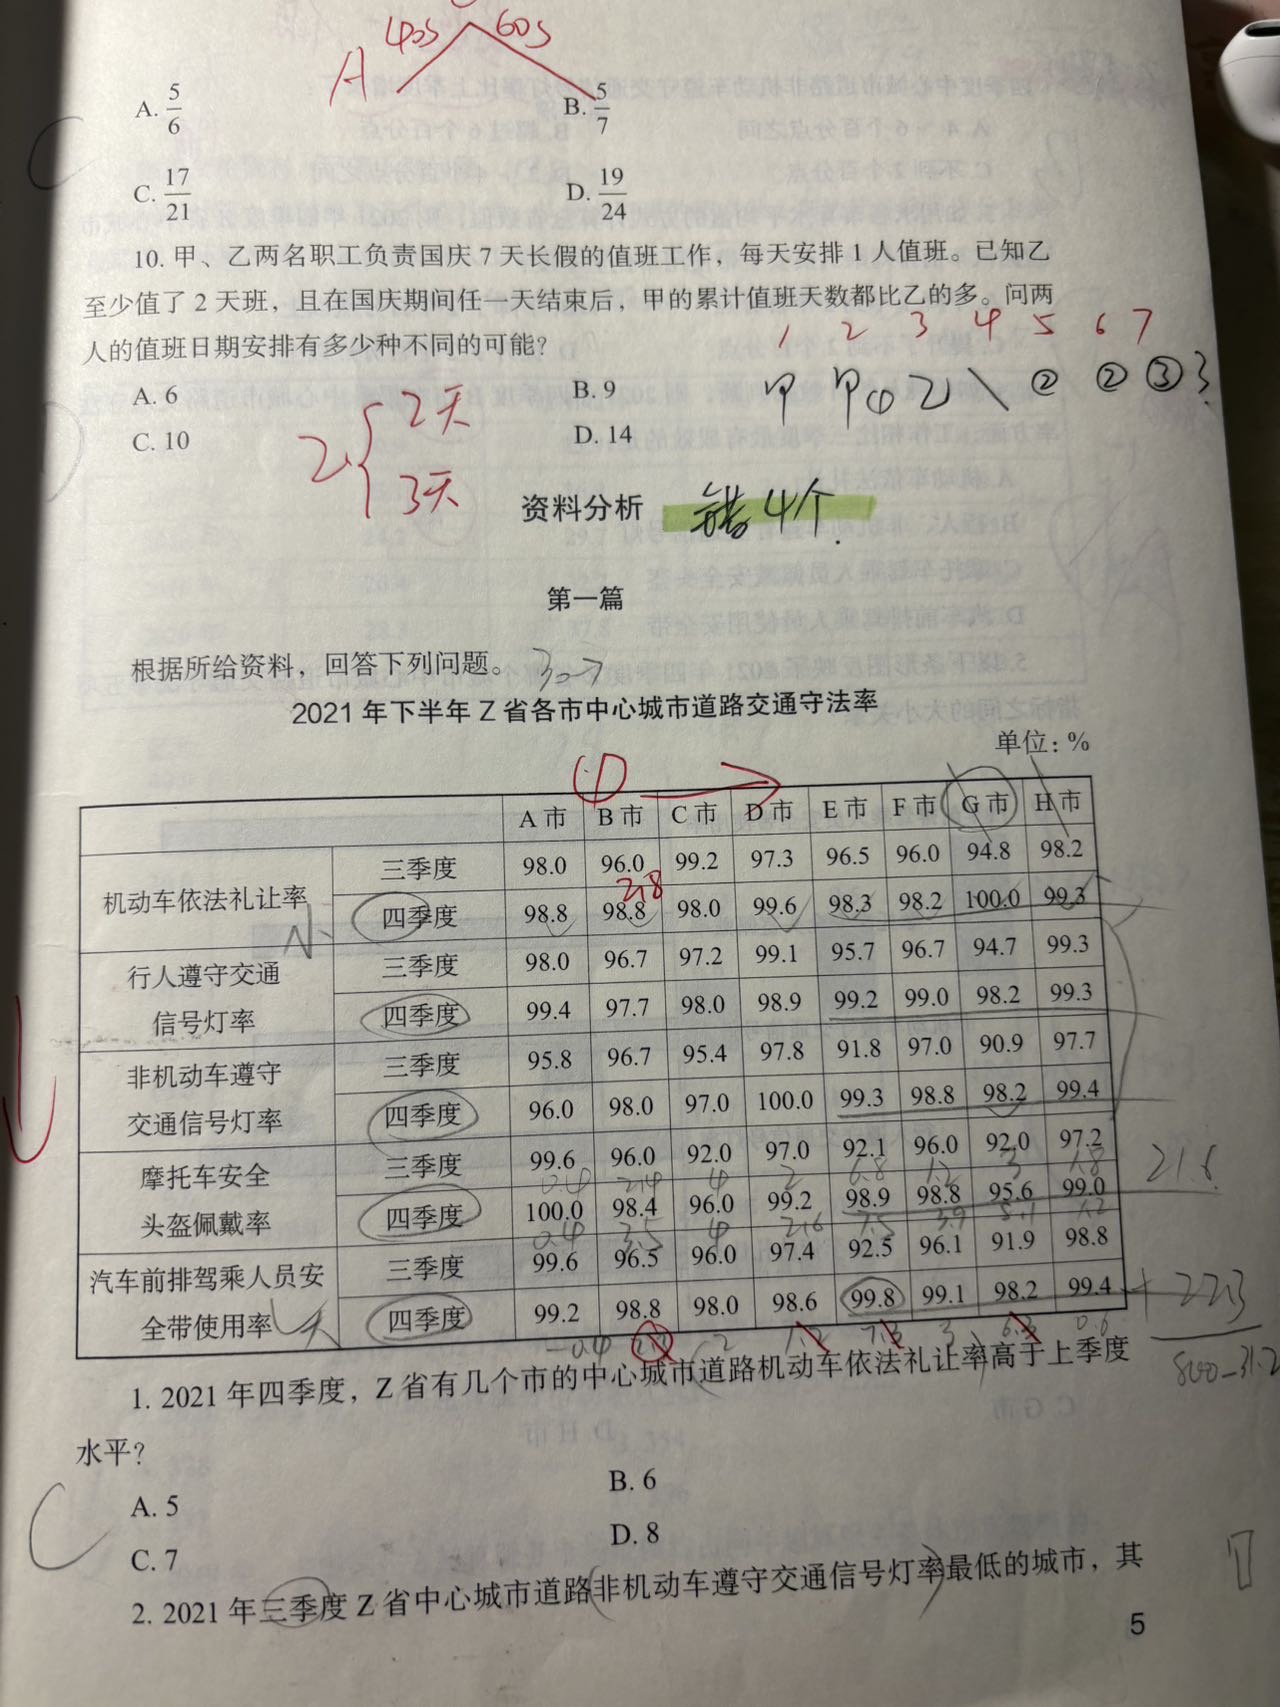 40s 60s
A
A. 5/6 B. 5/7
C. 17/21 D. 19/24
10. 甲、乙两名职工负责国庆 7 天长假的值班工作，每天安排 1 人值班。已知乙
至少值了 2 天班，且在国庆期间任一天结束后，甲的累计值班天数都比乙的多。问两
人的值班日期安排有多少种不同的可能？
1 2 3 4 5 6 7
A. 6 B. 9
甲 甲 ① 乙 \ ② ② ③ ?
C. 10 D. 14
乙 2天
3天
资料分析 错4个.
第一篇
根据所给资料，回答下列问题。
2021 年下半年 Z 省各市中心城市道路交通守法率
单位：%
①
A 市 B 市 C 市 D 市 E 市 F 市 G 市 H 市
机动车依法礼让率 三季度 98.0 96.0 99.2 97.3 96.5 96.0 94.8 98.2
2.8
四季度 98.8 98.8 98.0 99.6 98.3 98.2 100.0 99.3
行人遵守交通信号灯率 三季度 98.0 96.7 97.2 99.1 95.7 96.7 94.7 99.3
四季度 99.4 97.7 98.0 98.9 99.2 99.0 98.2 99.3
非机动车遵守交通信号灯率 三季度 95.8 96.7 95.4 97.8 91.8 97.0 90.9 97.7
四季度 96.0 98.0 97.0 100.0 99.3 98.8 98.2 99.4
摩托车安全头盔佩戴率 三季度 99.6 96.0 92.0 97.0 92.1 96.0 92.0 97.2
0.4 2.4 4 2 6.8 1.2 3 1.8
四季度 100.0 98.4 96.0 99.2 98.9 98.8 95.6 99.0
21.6
0.4 3.5 4 2.6 7.5 3.9 8.1 1.2
汽车前排驾乘人员安全带使用率 三季度 99.6 96.5 96.0 97.4 92.5 96.1 91.9 98.8
四季度 99.2 98.8 98.0 98.6 99.8 99.1 98.2 99.4
+ 22.3
-0.4 2 1.2 7.3 3 6.3 0.6
800-31.2
1. 2021 年四季度，Z 省有几个市的中心城市道路机动车依法礼让率高于上季度
水平？
A. 5 B. 6
C. 7 D. 8
C
2. 2021 年三季度 Z 省中心城市道路非机动车遵守交通信号灯率最低的城市，其
5